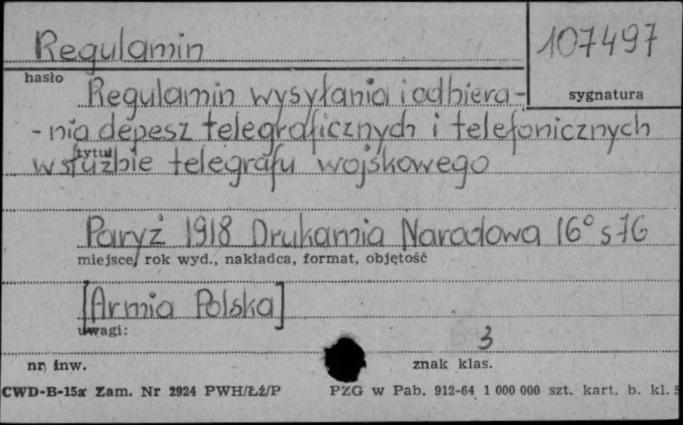 Regulamin
107497
hasło
sygnatura
Regulamin wysyłania i odbiera-
-nia depesz telegraficznych i telefonicznych
tytuł
w służbie telegrafu wojskowego
Paryż 1918 Drukarnia Narodowa 16° s 76
miejsce, rok wyd., nakładca, format, objętość
[Armia Polska]
uwagi:
3
nr inw.
znak klas.
CWD-B-15a Zam. Nr 2924 PWH/Łż/P
PZG w Pab. 912-64 1 000 000 szt. kart. b. kl. 5